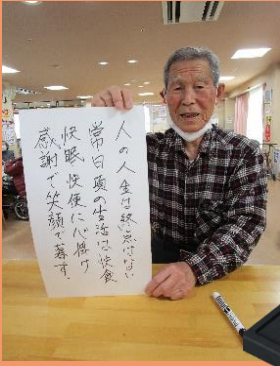 人の人生は終点はない
常日頃の生活は快食
快眠快便に心掛け
感謝で笑顔で暮す。